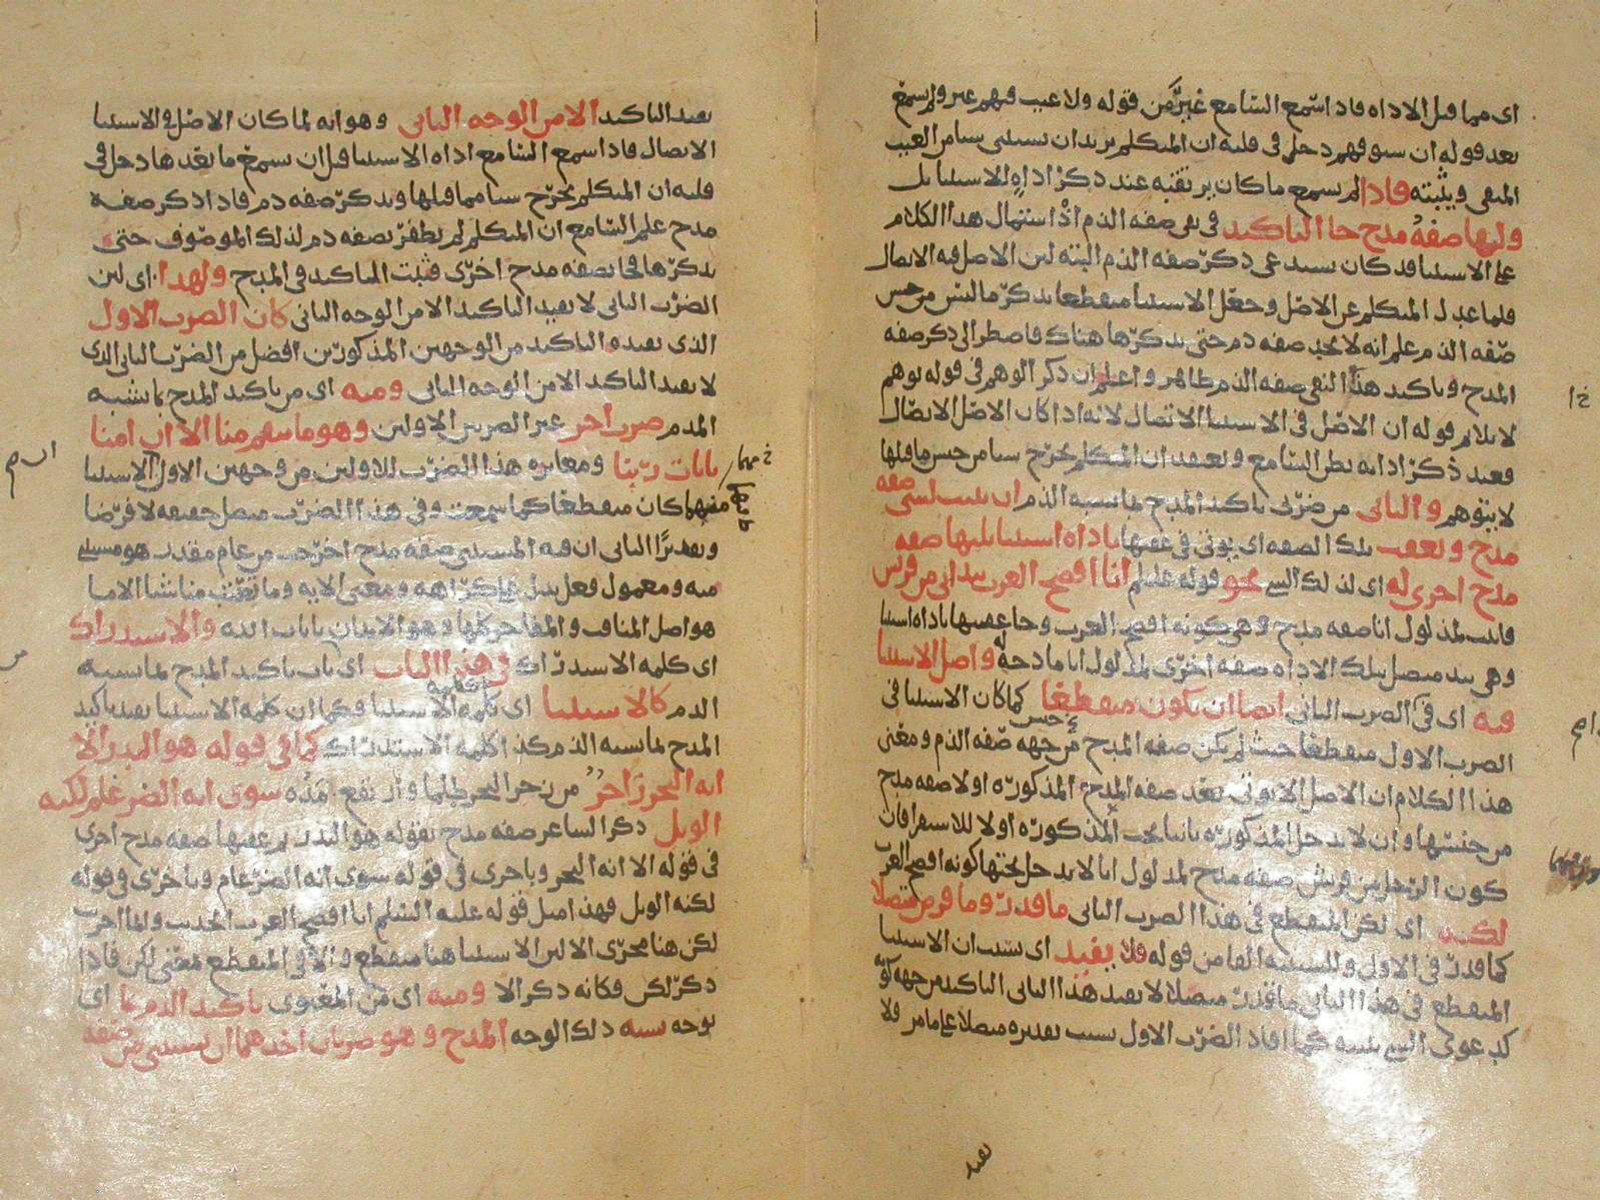 اى مما قبل الاداه فاذا سمع السامع غير من قوله ولا عيب فيهم غير ولم يسمع
بعد قوله ان سيوفهم دخل فى قلبه ان المتكلم يريد ان يستثنى شيا من العيب
المنفى ويثبته فاذا لم يسمع ما كان يرتقبه عند ذكر اداه الاستثنا بل
وليها صفه مدح جا التاكيد فى نفى صفه الذم اذ استهلال هذا الكلام
على الاستثنا قد كان يستدعى ذكر صفه الذم البته لان الاصل فيه الاتصال
فلما عدل المتكلم عن الاصل وجعل الاستثنا منقطعا بذكر ما ليس من جنس
صفه الذم علم انه لا يجد صفه ذم حتى يذكرها هناك فاضطر الى ذكر صفه
المدح وتاكيد هذا النفى صفه الذم ظاهر واعلم ان ذكر الوهم فى قوله يوهم
لا يلايم قوله ان الاصل فى الاستثنا الاتصال لانه اذا كان الاصل الاتصال
فعند ذكر اداته ينظر السامع ويعتقد ان المتكلم يخرج شيا من جنس ما قبلها
لا يتوهم والثانى من ضربى تاكيد المدح بما يشبه الذم ان يثبت لشى صفه
مدح ويعقب تلك الصفه اى يوتى فى عقبها باداه استثنا يليها صفه
مدح اخرى له اى لذلك الشى نحو قوله عليلم انا افصح العرب بيد انى من قريش
فاثبت لمدلول انا صفه مدح وهى كونه افصح العرب وجا عقبها باداه استثنا
وهى بيد متصل بتلك الاداه صفه اخرى لمدلول انا مادحة له واصل الاستثنا
فيه اى فى الضرب الثانى ايضا ان يكون منقطعا كما كان الاستثنا فى
الضرب الاول منقطعا حيث لم يكن صفه المدح من جهه صفه الذم ومعنى
هذا الكلام ان الاصل الا يوتى بعد صفه المدح المذكوره اولا صفه مدح
من جنسها وان لا يدخل المذكوره ثانيا تحت المذكوره اولا للاستغراق فان
كون الرجل من قريش صفه مدح لمدلول انا لا يدخل تحتها كونه افصح العرب
لكنه اى لكن المنقطع فى هذا الضرب الثانى ما قدر وما فرض متصلا
كما قدر فى الاول وللتنبيه الفا من قوله فلا يفيد اى بسبب ان الاستثنا
المنقطع فى هذا الثانى ما قدر متصلا لا يفيد هذا الثانى التاكيد من جهه كونه
كدعوى الشى ببينه كما افاد الضرب الاول بسبب تقديره متصلا على ما مر فلا
يفيد
يفيد التاكيد الا من الوجه الثانى وهو انه لما كان الاصل فى الاستثنا
الاتصال فاذا سمع السامع اداه الاستثنا قبل ان يسمع ما بعدها دخل فى
قلبه ان المتكلم يخرج شيا مما قبلها ويذكر صفه ذم فاذا ذكر صفه
مدح علم السامع ان المتكلم لم يظفر بصفه ذم لذلك الموصوف حتى
يذكرها فجا بصفه مدح اخرى فثبت التاكيد فى المدح ولهذا اى لان
الضرب الثانى لا يفيد التاكيد الا من الوجه الثانى كان الضرب الاول
الذى يفيد التاكيد من الوجهين المذكورين افضل من الضرب الثانى الذى
لا يفيد التاكيد الا من الوجه الثانى ومنه اى من تاكيد المدح بما يشبه
الذم ضرب اخر غير الضربين الاولين وهو وما تنقم منا الا ان امنا
بايات ربنا ومغايره هذا الضرب للاولين من وجهين الاول الاستثنا
منهما كان منقطعا كما سمعت وفى هذا الضرب متصل حقيقه لا فرضا
وتقديرا الثانى ان فيه المستثنى صفه مدح اخرجت من عام مقدر هو مستثنى
منه ومعمول فعل يدل على كراهه ومعنى الايه وما تعيب منا شيا الا ما
هو اصل المناقب والمفاخر كلها وهو الايمان بايات الله والاستدراك
اى كلمه الاستدراك فى هذا الباب اى باب تاكيد المدح بما يشبه
الذم كالاستثنا اى كلمه الاستثنا فكما ان كلمه الاستثنا يفيد تاكيد
المدح بما يشبه الذم كذا كلمه الاستدراك كما فى قوله هو البدر الا
انه البحر زاخر من زخر البحر طما وارتفع مده سوى انه الضرغام لكنه
الوبل ذكر الشاعر صفه مدح بقوله هو البدر ثم عقبها صفه مدح اخرى
فى قوله الا انه البحر وباخرى فى قوله سوى انه الضرغام وباخرى فى قوله
لكنه الوبل فهذا مثل قوله عليه السلم انا افصح العرب الحديث ولما اجرى
لكن هنا مجرى الا لان الاستثنا هنا منقطع والا فى المنقطع بمعنى لكن فاذا
ذكر لكن فكانه ذكر الا ومنه اى من المعنوى تاكيد الذم بما اى
بوجه يشبه ذلك الوجه المدح وهو ضربان احدهما ان يستثنى من صفه